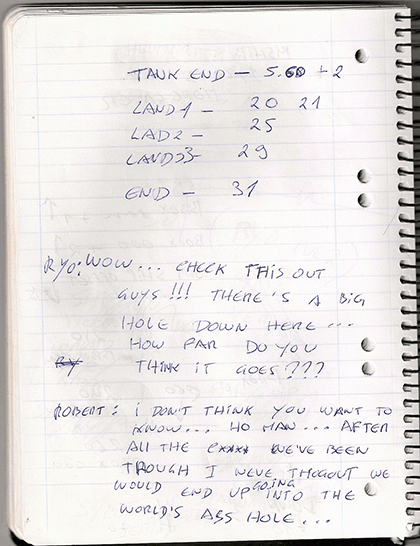 TANK END – 5.60 + 2
LAND1 – 20 21
LAD2 – 25
LAND3 – 29
END – 31
RYO: WOW... CHECK THIS OUT
GUYS!!! THERE'S A BIG
HOLE DOWN HERE...
HOW FAR DO YOU
RY THINK IT GOES???
ROBERT: I DON'T THINK YOU WANT TO
KNOW... HO MAN... AFTER
ALL THE WE'VE BEEN
TROUGH I NEVE THOGOUT WE
WOULD END UP GOING INTO THE
WORLD'S ASS HOLE...